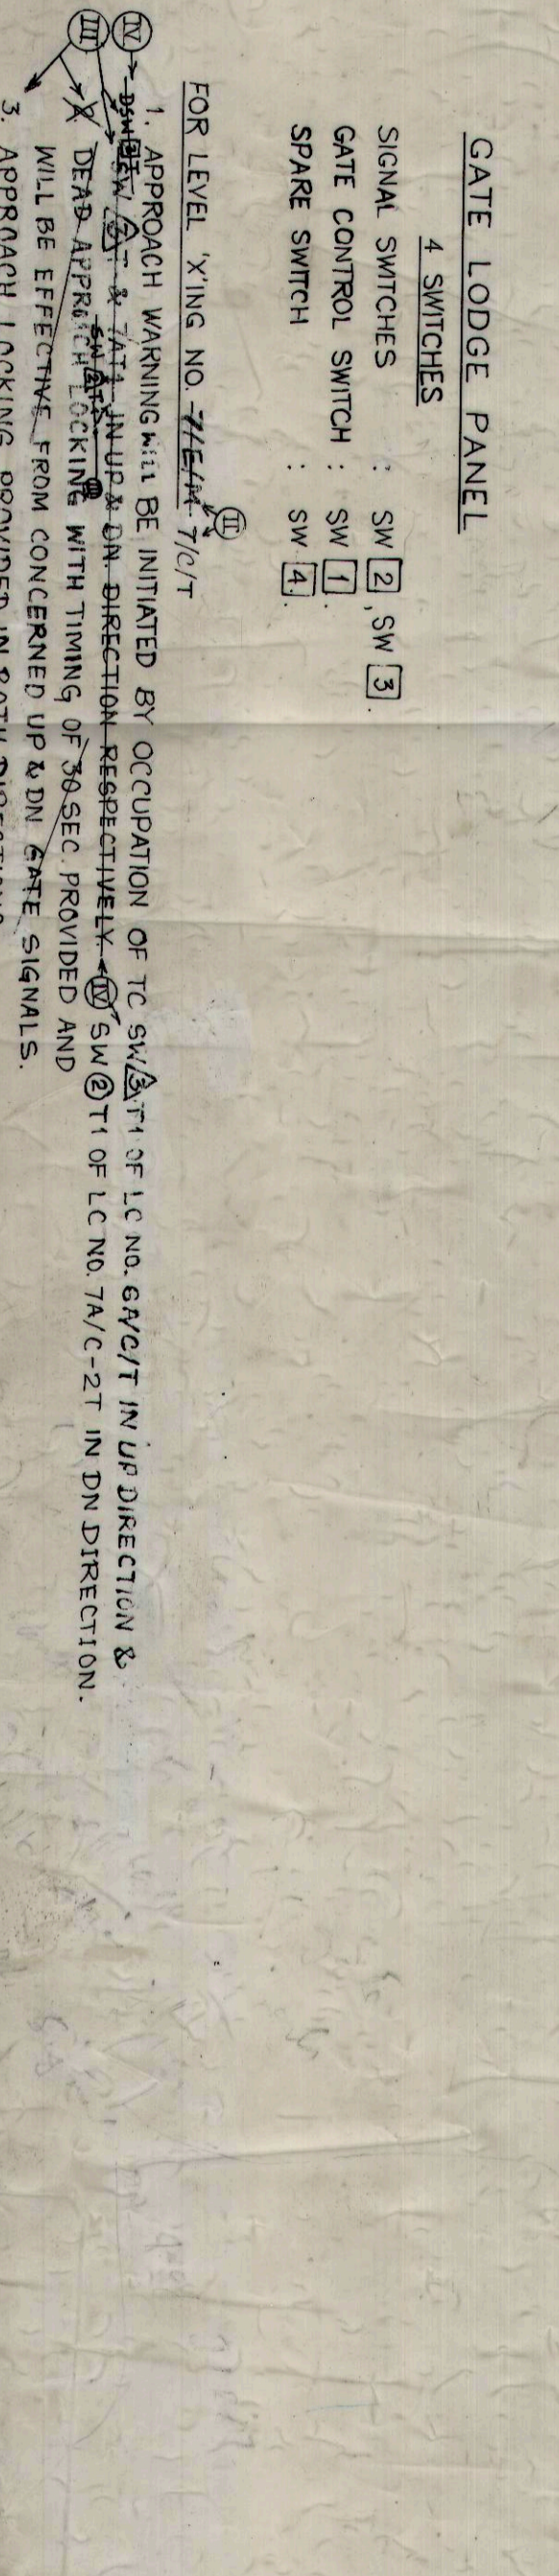 GATE LODGE PANEL
4 SWITCHES
SIGNAL SWITCHES : SW 2, SW 3.
GATE CONTROL SWITCH : SW 1.
SPARE SWITCH : SW 4.
FOR LEVEL 'X'ING NO. 7/E/M 7/C/T
II
IV
1. APPROACH WARNING will BE INITIATED BY OCCUPATION OF TC SW 3 T1 OF LC NO. 6A/C/T IN UP DIRECTION &
& 7AT1 IN UP & DN. DIRECTION RESPECTIVELY. IV SW 2 T1 OF LC NO. 7A/C-2T IN DN DIRECTION.
III
DEAD APPROACH LOCKING WITH TIMING OF 30 SEC. PROVIDED AND
WILL BE EFFECTIVE FROM CONCERNED UP & DN GATE SIGNALS.
3. APPROACH LOCKING PROVIDED IN BOTH DIRECTIONS